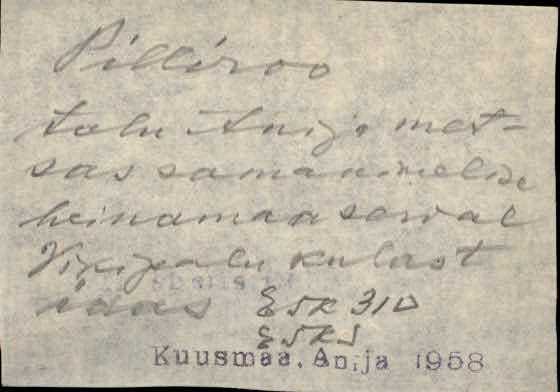 Pilliroo
talu Anija met-
sas samanimelise
heinamaa serval
Vikipalu külast
idas ESK 310
ESKS
Kuusmaa. Anija 1958